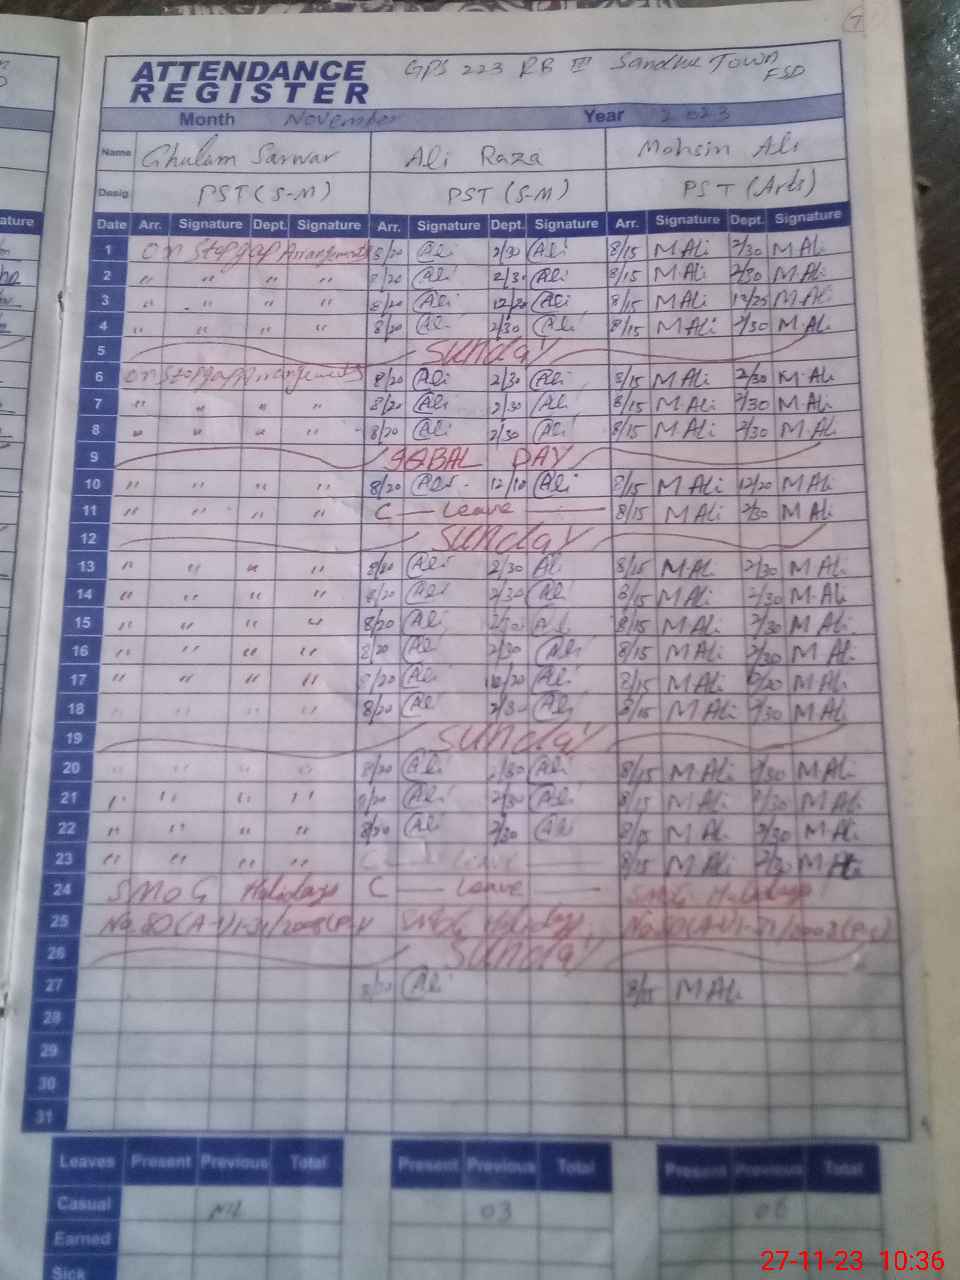 7
ATTENDANCE REGISTER GPS 223 RB III Sandhu Town FSD
Month November Year 2023
Name Ghulam Sarwar Ali Raza Mohsin Ali
Desig PST (S-M) PST (S-M) PST (Arts)
Date Arr. Signature Dept. Signature Arr. Signature Dept. Signature Arr. Signature Dept. Signature
1 On Stopgap Arrangements 8/20 Ali 2/30 Ali 8/15 M Ali 2/30 M Ali
2 " " " " 8/20 Ali 2/30 Ali 8/15 M Ali 2/30 M Ali
3 " " " " 8/20 Ali 12/20 Ali 8/15 M Ali 12/25 M Ali
4 " " " " 8/20 Ali 2/30 Ali 8/15 M Ali 2/30 M Ali
5 Sunday
6 On Stopgap Arrangements 8/20 Ali 2/30 Ali 8/15 M Ali 2/30 M Ali
7 " " " " 8/20 Ali 2/30 Ali 8/15 M Ali 2/30 M Ali
8 " " " " 8/20 Ali 2/30 Ali 8/15 M Ali 2/30 M Ali
9 IQBAL DAY
10 " " " " 8/20 Ali 12/10 Ali 8/15 M Ali 12/20 M Ali
11 " " " " C — Leave — 8/15 M Ali 2/30 M Ali
12 Sunday
13 " " " " 8/20 Ali 2/30 Ali 8/15 M Ali 2/30 M Ali
14 " " " " 8/20 Ali 2/30 Ali 8/15 M Ali 2/30 M Ali
15 " " " " 8/20 Ali 2/30 Ali 8/15 M Ali 2/30 M Ali
16 " " " " 8/20 Ali 2/30 Ali 8/15 M Ali 2/30 M Ali
17 " " " " 8/20 Ali Ali 8/15 M Ali M Ali
18 " " " " 8/20 Ali 2/30 Ali 8/15 M Ali 2/30 M Ali
19 Sunday
20 " " " " 8/20 Ali 2/30 Ali 8/15 M Ali 2/30 M Ali
21 " " " " 8/20 Ali 2/30 Ali 8/15 M Ali 2/30 M Ali
22 " " " " 8/20 Ali 2/30 Ali 8/15 M Ali 2/30 M Ali
23 " " " " C — Leave — 8/15 M Ali 2/30 M Ali
24 SMOG Holidays C — Leave — SMOG Holidays
25 No. SO(A-1)1-31/2008(P-V SMOG Holidays
26 Sunday
27 8/20 Ali 8/15 M Ali
28
29
30
31
Leaves Present Previous Total Present Previous Total Present Previous Total
Casual 03
Earned
Sick
27-11-23 10:36